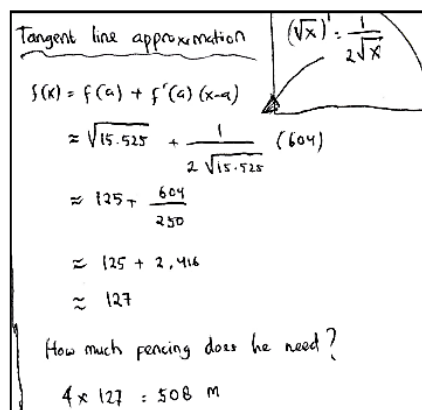 Tangent line approximation
(√x)' = 1/(2√x)
f(x) = f(a) + f'(a) (x-a)
≈ √15.525 + 1/(2√15.525) (604)
≈ 125 + 604/250
≈ 125 + 2,416
≈ 127
How much fencing does he need?
4 × 127 = 508 m